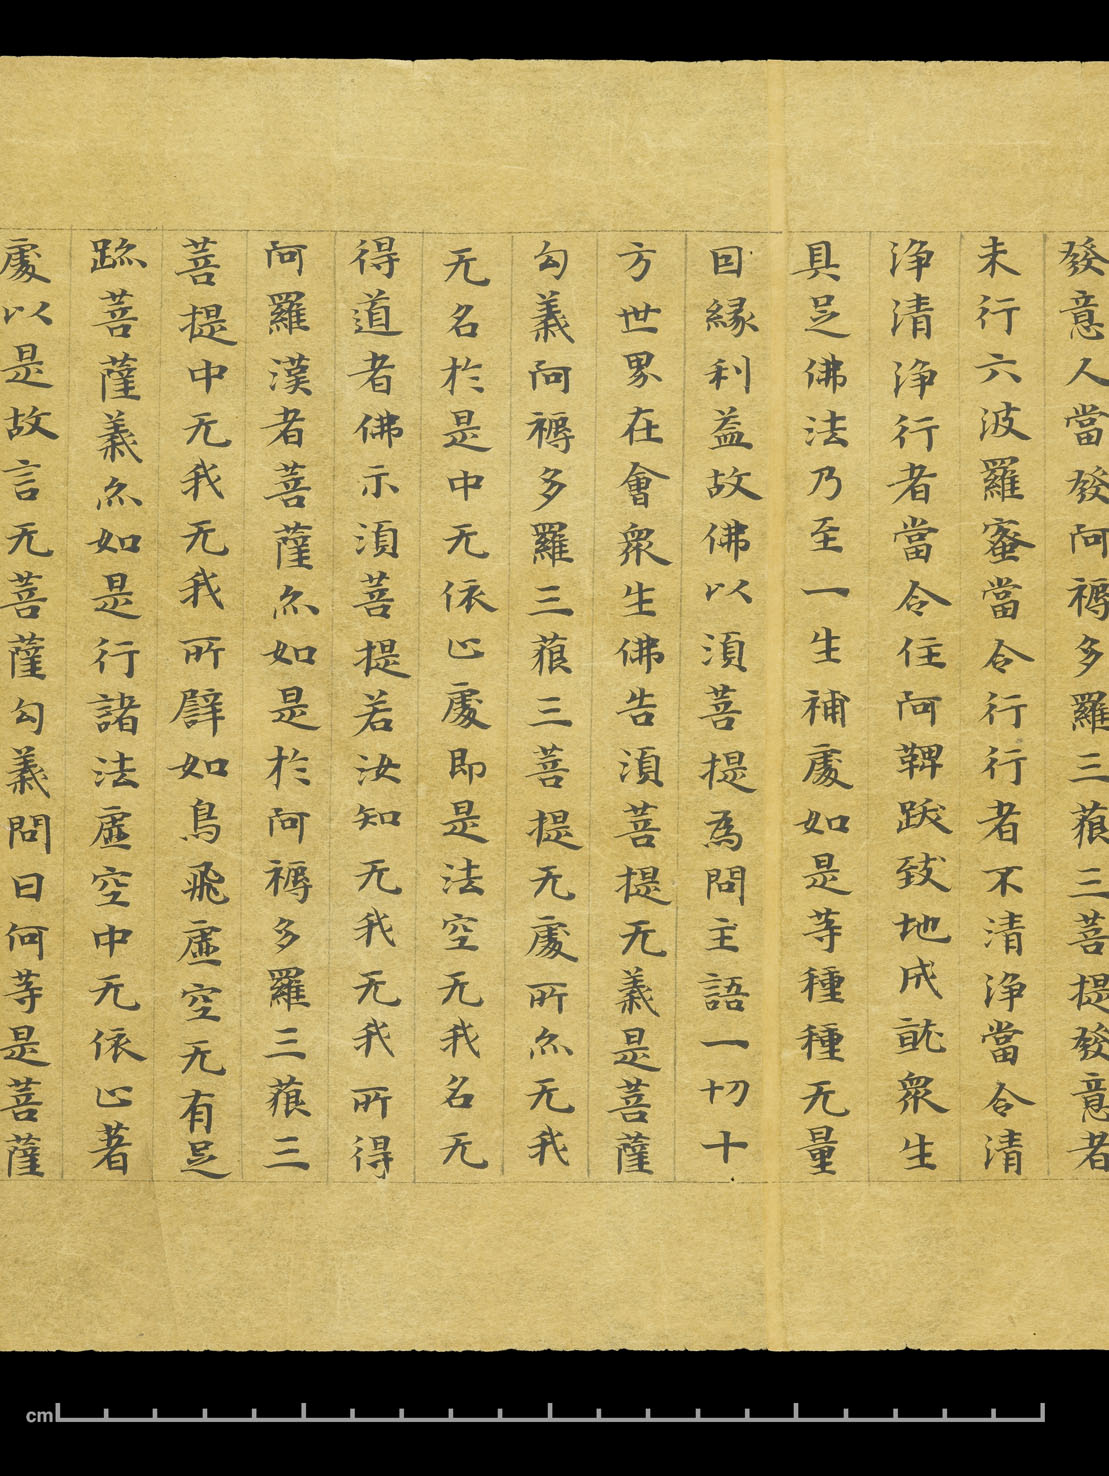 發意人當發阿耨多羅三藐三菩提發意者
未行六波羅蜜當令行行者不清淨當令清
淨清淨行者當令住阿鞞跋致地成就眾生
具足佛法乃至一生補處如是等種種无量
因緣利益故佛以須菩提為問主語一切十
方世界在會眾生佛告須菩提无義是菩薩
句義阿耨多羅三藐三菩提无處所亦无我
无名於是中无依止處即是法空无我名无
得道者佛示須菩提若汝知无我无我所得
阿羅漢者菩薩亦如是於阿耨多羅三藐三
菩提中无我无我所譬如鳥飛虛空无有足
跡菩薩義亦如是行諸法虛空中无依止著
處以是故言无菩薩句義問曰何等是菩薩